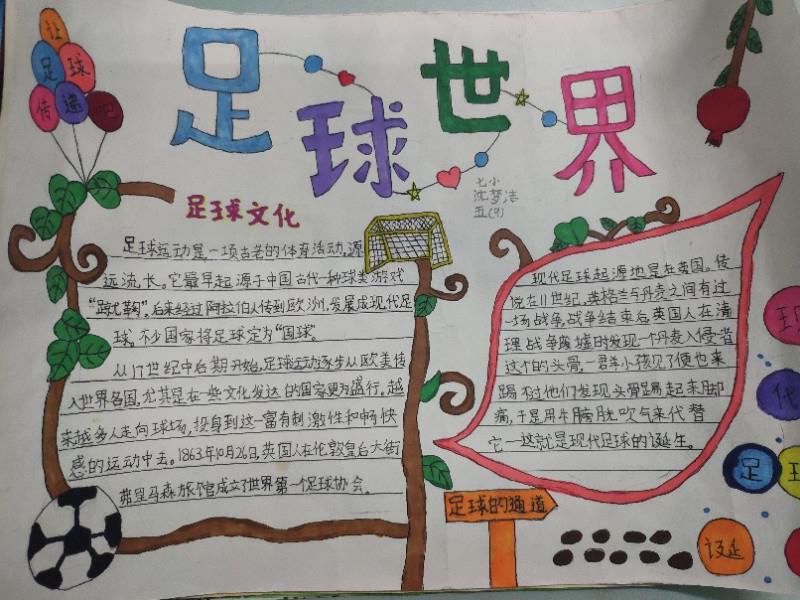 让
足球
传递吧
足球世界
七小
沈梦洁
五(9)
足球文化
足球运动是一项古老的体育活动,源
远流长。它最早起源于中国古代一种球类游戏
“蹴鞠”,后来经过阿拉伯人传到欧洲,发展成现代足
球,不少国家将足球定为“国球”。
从17世纪中后期开始,足球运动逐步从欧美传
入世界各国,尤其是在一些文化发达的国家更为盛行,越
来越多人走向球场,投身到这一富有刺激性和畅快
感的运动中去。1863年10月26日,英国人在伦敦皇后大街
弗里马森旅馆成立了世界第一个足球协会。
现代足球起源地是在英国。传
说在11世纪,英格兰与丹麦之间有过
一场战争,战争结束后英国人在清
理战争废墟时发现一个丹麦入侵者
这个的头骨,一群小孩见了便也来
踢不过他们发现头骨踢起来脚
痛,于是用牛膀胱吹气来代替
它一这就是现代足球的诞生。
足球的通道
现
代
足
诞